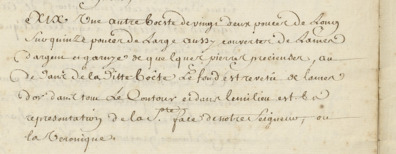 XIX. Une autre boëste de vingt deux pouces de Long
sur quinze pouces de Large aussy couverte de Lames
d'argent et garnye de quelques pierres precieuses, au
dedans de la ditte boëte Le fond est revetu de lames
d'or dans tout Le Contour et dans le milieu est La
representation de la Ste. face de notre Seigneur, ou
la Veronique.